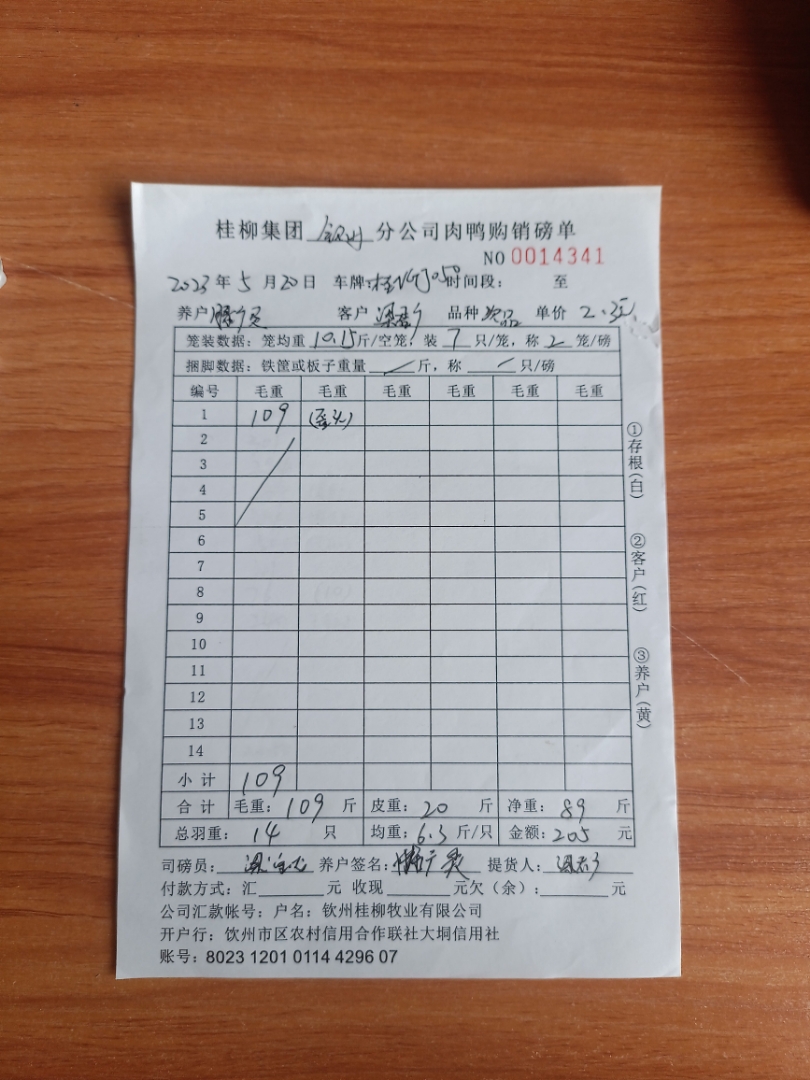 桂柳集团 钦州 分公司肉鸭购销磅单
NO 0014341
2023 年 5 月 20 日 车牌: 时间段: 至
养户 客户 品种 单价 2.3元
笼装数据: 笼均重 10.15 斤/空笼, 装 7 只/笼, 称 2 笼/磅
捆脚数据: 铁筐或板子重量 / 斤, 称 / 只/磅
编号 毛重 毛重 毛重 毛重 毛重 毛重
1 109
2
3
4
5
6
7
8
9
10
11
12
13
14
小计 109
合计 毛重: 109 斤 皮重: 20 斤 净重: 89 斤
总羽重: 14 只 均重: 6.3 斤/只 金额: 205 元
司磅员: 养户签名: 提货人:
付款方式: 汇 元 收现 元欠(余): 元
公司汇款帐号: 户名: 钦州桂柳牧业有限公司
开户行: 钦州市区农村信用合作联社大垌信用社
账号: 8023 1201 0114 4296 07
①存根(白)
②客户(红)
③养户(黄)